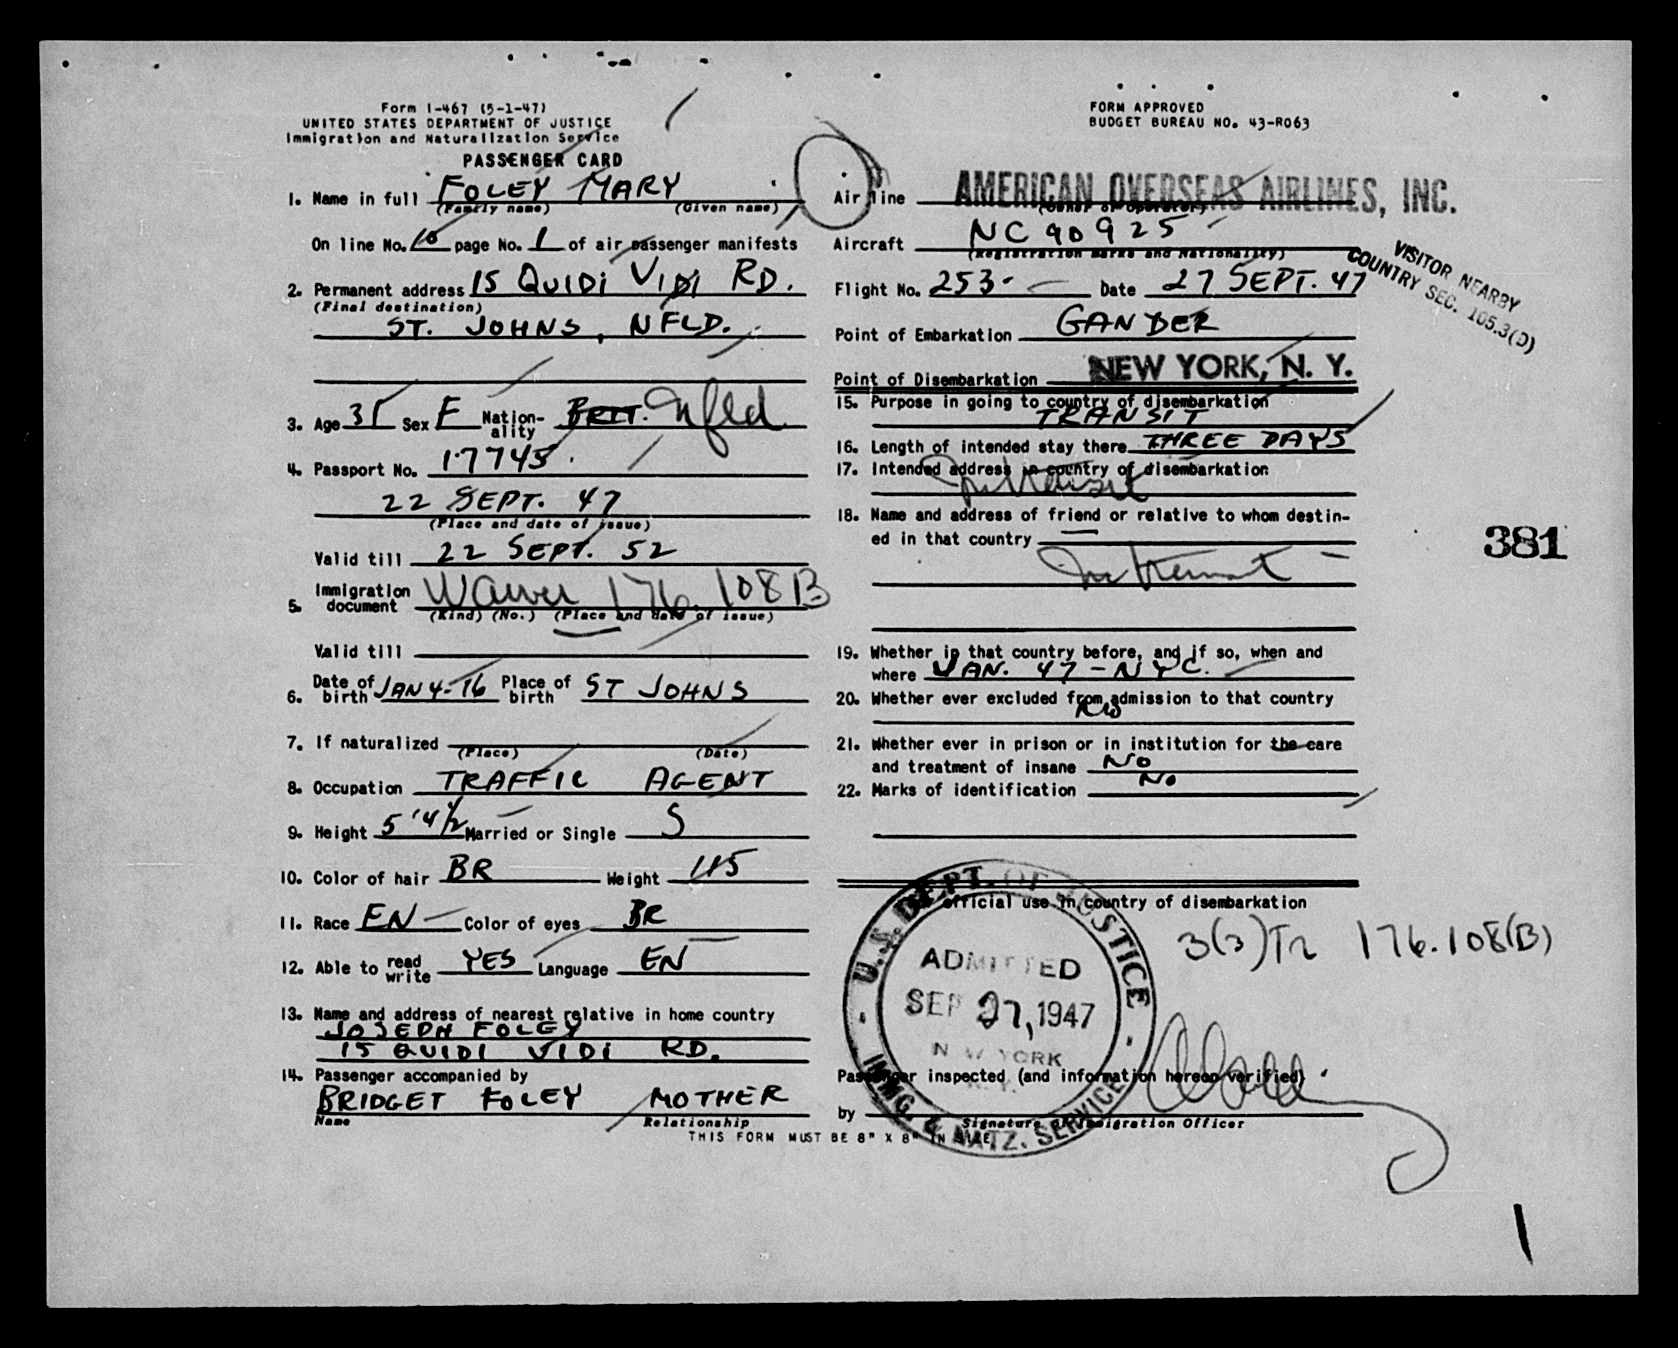 Form I-467 (5-1-47)
UNITED STATES DEPARTMENT OF JUSTICE
Immigration and Naturalization Service
PASSENGER CARD
1. Name in full FOLEY MARY
(Family name) (Given name)
On line No. 10 page No. 1 of air passenger manifests
2. Permanent address 15 QUIDI VIDI RD.
(Final destination)
ST. JOHNS, NFLD.
3. Age 31 Sex F Nation-ality BRIT. Nfld
4. Passport No. 17745
22 SEPT. 47
(Place and date of issue)
Valid till 22 SEPT. 52
5. Immigration document Waiver 176.108B
(Kind) (No.) (Place and date of issue)
Valid till
6. Date of birth JAN 4-16 Place of birth ST JOHNS
7. If naturalized
(Place) (Date)
8. Occupation TRAFFIC AGENT
9. Height 5'4 1/2 Married or Single S
10. Color of hair BR Weight 115
11. Race EN Color of eyes BR
12. Able to read write YES Language EN
13. Name and address of nearest relative in home country
JOSEPH FOLEY
15 QUIDI VIDI RD.
14. Passenger accompanied by
BRIDGET FOLEY MOTHER
Name Relationship
THIS FORM MUST BE 8" X 8" IN SIZE
FORM APPROVED
BUDGET BUREAU NO. 43-R063
Air line AMERICAN OVERSEAS AIRLINES, INC.
(Owner or operator)
Aircraft NC 90925
(Registration marks and Nationality)
Flight No. 253 Date 27 SEPT. 47
VISITOR NEARBY
COUNTRY SEC. 105.3(D)
Point of Embarkation GANDER
Point of Disembarkation NEW YORK, N. Y.
15. Purpose in going to country of disembarkation
TRANSIT
16. Length of intended stay there THREE DAYS
17. Intended address in country of disembarkation
In transit
18. Name and address of friend or relative to whom destin-
ed in that country
In transit
381
19. Whether in that country before, and if so, when and
where JAN. 47 - NYC.
20. Whether ever excluded from admission to that country
No
21. Whether ever in prison or in institution for the care
and treatment of insane NO
22. Marks of identification NO
official use in country of disembarkation
3(3)Tr 176.108(B)
U.S. DEPT. OF JUSTICE
ADMITTED
SEP 27, 1947
NEW YORK
N. Y.
IMMG. & NATZ. SERVICE
Passenger inspected (and information hereon verified)
by
Signature of Immigration Officer